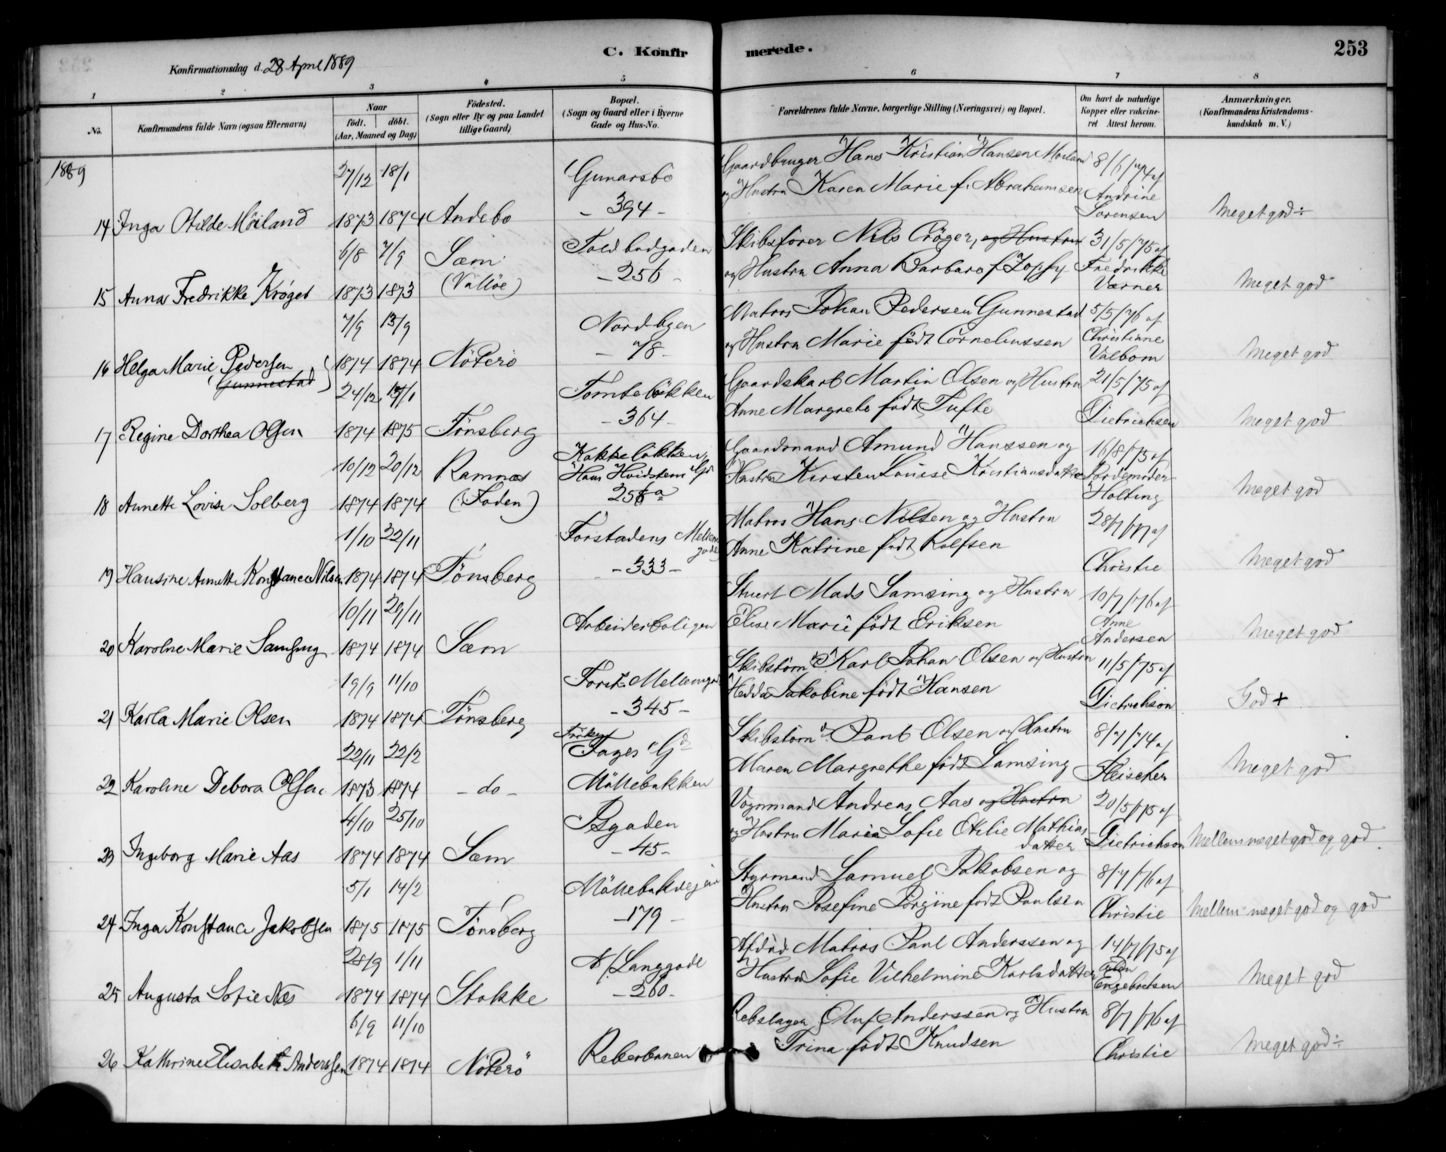 C. Konfirmerede.
253
Konfirmationsdag d. 28 April 1889
1 2 3 4 5 6 7 8
No.
Konfirmandens fulde Navn (ogsaa Efternavn)
Naar
født. døbt.
(Aar, Maaned og Dag)
Fødested.
(Sogn eller By og paa Landet
tillige Gaard)
Bopæl.
(Sogn og Gaard eller i Byerne
Gade og Hus-No.
Forældrenes fulde Navne, borgerlige Stilling (Næringsvei) og Bopæl.
Om havt de naturlige
Kopper eller vakcine-
ret Attest herom.
Anmærkninger.
(Konfirmandens Kristendoms-
kundskab m. V.)
1889
27/12 18/1 Gunarsbo Gaardbruger Hans Kristian Hansen Moiland 8/6/74 af
og Hustru Karen Marie f. Abrahamsen Andrine
14 Inga Otilde Moiland 1873 1874 Andebo - 394 - Sørensen Meget god ÷
6/8 7/9 Sæm Toldbodgaden Skibsfører Nils Crøger, og Hustru 31/5/75 af
15 Anna Fredrikke Krøger 1873 1873 (Valløe) - 256 - og Hustru Anna Barbara f. Zopfy Fredrikke Værner Meget god
7/9 13/9 Nordbyen Matros Johan Pedersen Gunnestad 5/5/76 af
16 Helga Marie Pedersen (Gunnestad) 1874 1874 Nøterø og Hustru Marie født Corneliussen Christiane Valbom Meget god
24/12 17/1 Tomtebøkken Gaardskarl Martin Olsen og Hustru 21/5/75 af
17 Regine Dorthea Olsen 1874 1875 Tønsberg - 364 - Anne Margrete født Tufte Dietrichsen Meget god
10/12 20/12 Ramnæs Hans Hvidstens Gd Gaardmand Amund Hanssen og 16/8/75 af
18 Annette Lovise Solberg 1874 1874 (Foden) 256 a Hustru Kirsten Louise Kristiansdatter Jordemoder Holting Meget god
1/10 22/11 Forstadens Mellemgade Matros Hans Nilsen og Hustru 28/7/77 af
19 Hansine Annette Konstance Nilsen 1874 1874 Tønsberg - 333 - Anne Katrine født Rolfsen Christie Meget god
10/11 29/11 Arbeiderboligen Stuert Mads Samsing og Hustru 10/7/76 af
20 Karoline Marie Samsing 1874 1874 Sæm Elise Marie født Eriksen Anne Andersen Meget god
19/9 11/10 Forst. Mellemgd Skibstømr Karl Johan Olsen og Hustru 11/5/75 af
21 Karla Marie Olsen 1874 1874 Tønsberg - 345 - Hedda Jakobine født Hansen Dietrichson God +
22/11 22/2 Fages Gd Skibstømr Paul Olsen og Hustru 8/7/74 af
22 Karoline Debora Olsen 1873 1874 - do - Møllebakken Maren Margrethe født Samsing Fleischer Meget god
4/10 25/10 Bgaden Vognmand Andreas Aas og Hustru 20/5/75 af
23 Ingeborg Marie Aas 1874 1874 Sæm - 45 - og Hustru Maria Sofie Otilie Mathiasdatter Dietrichson Mellem meget god og god.
5/1 14/2 Møllebakveien Styrmand Samuel Jakobsen og 8/7/76 af
24 Inga Konstance Jakobsen 1875 1875 Tønsberg - 179 - Hustru Josefine Børgine født Poulsen Christie Mellem meget god og god
28/9 1/11 N. Langgade Afdød Matros Paul Anderssen og 14/7/75 af
25 Augusta Sofie Næs 1874 1874 Stokke - 260 - Hustru Sofie Vilhelmine Karlsdatter Engebretsen Meget god
6/9 11/10 Reberbanen Rebslager Oluf Anderssen og Hustru 8/7/76 af
26 Kathrine Elisabeth Anderssen 1874 1874 Nøterø Trina født Knudsen Christie Meget god ÷